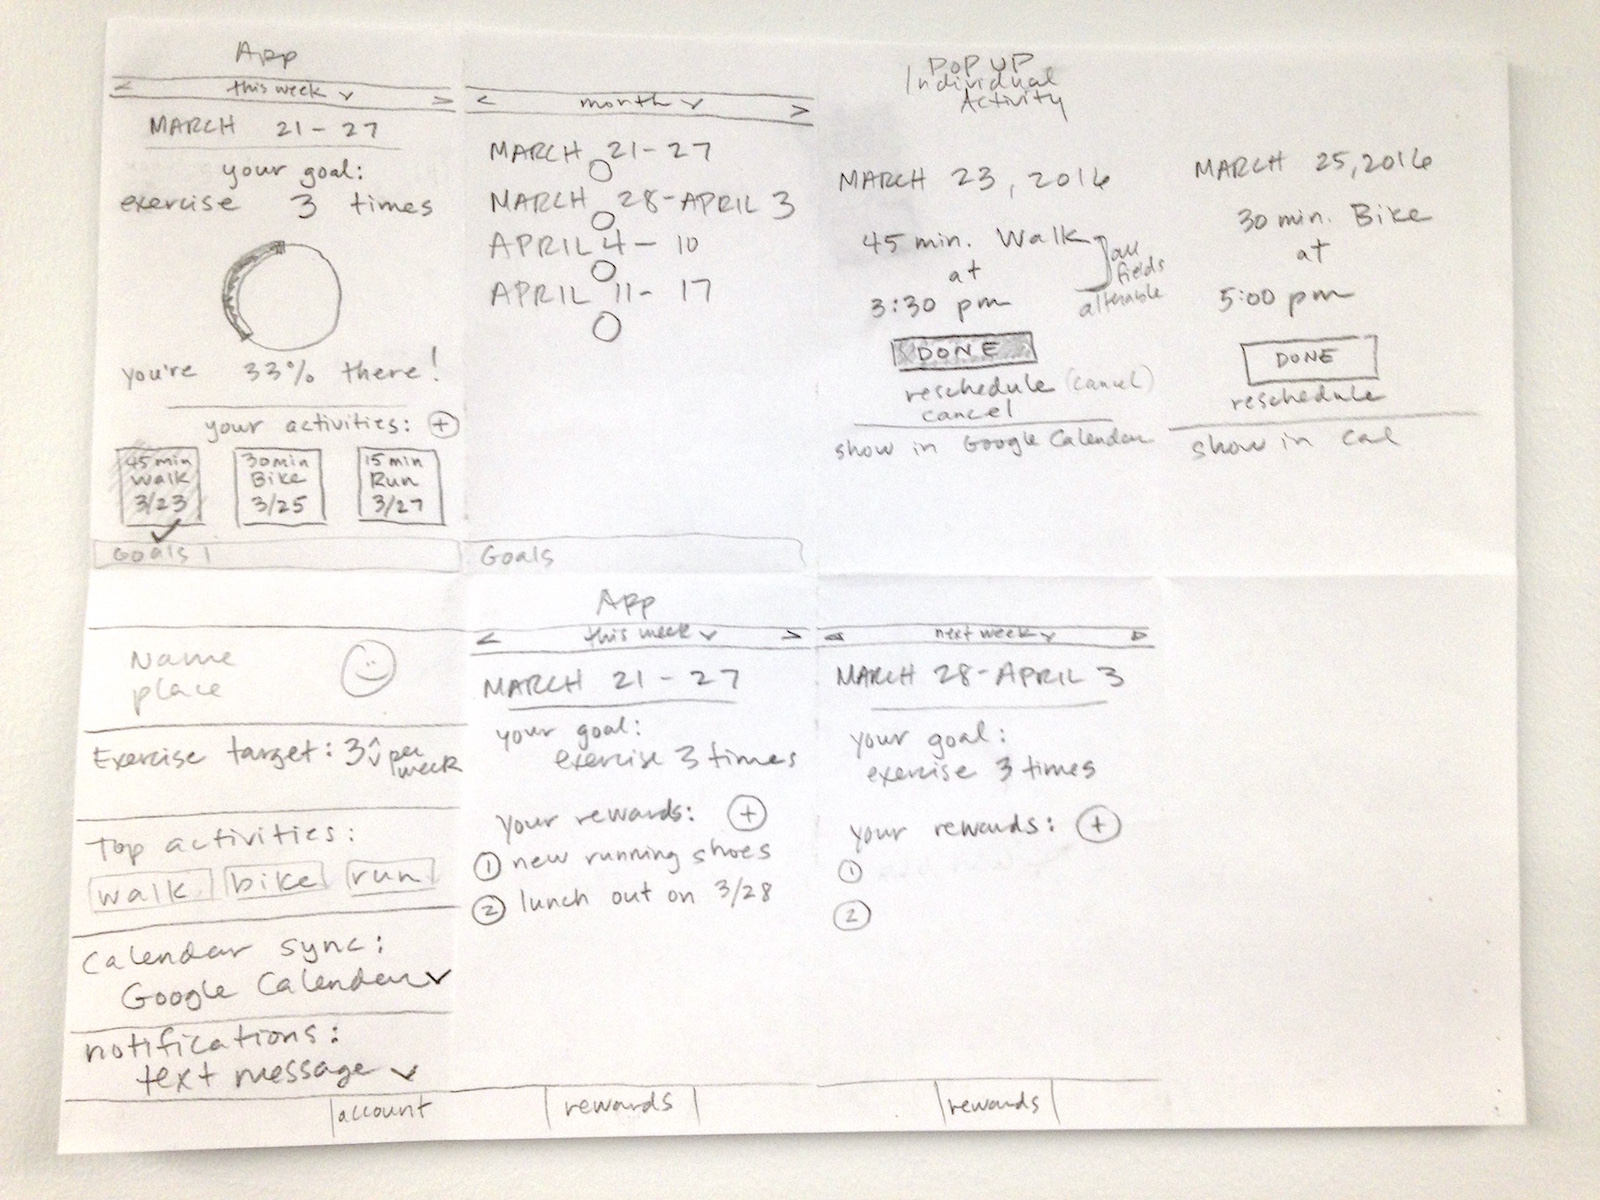 App
< this week >
MARCH 21-27
your goal:
exercise 3 times
you're 33% there!
your activities: +
45 min
Walk
3/23
30 min
Bike
3/25
15 min
Run
3/27
Goals
< month >
MARCH 21-27
MARCH 28-APRIL 3
APRIL 4-10
APRIL 11-17
Goals
POP UP
Individual
Activity
MARCH 23, 2016
45 min. Walk
at
3:30 pm
all
fields
alterable
DONE
reschedule (cancel)
cancel
show in Google Calendar
MARCH 25, 2016
30 min. Bike
at
5:00 pm
DONE
reschedule
show in cal
Name
place
Exercise target: 3 per
week
Top activities:
walk bike run
Calendar sync:
Google Calendar
notifications:
text message
account
App
< this week >
MARCH 21-27
your goal:
exercise 3 times
your rewards: +
1 new running shoes
2 lunch out on 3/28
rewards
next week
MARCH 28-APRIL 3
your goal:
exercise 3 times
your rewards: +
1
2
rewards